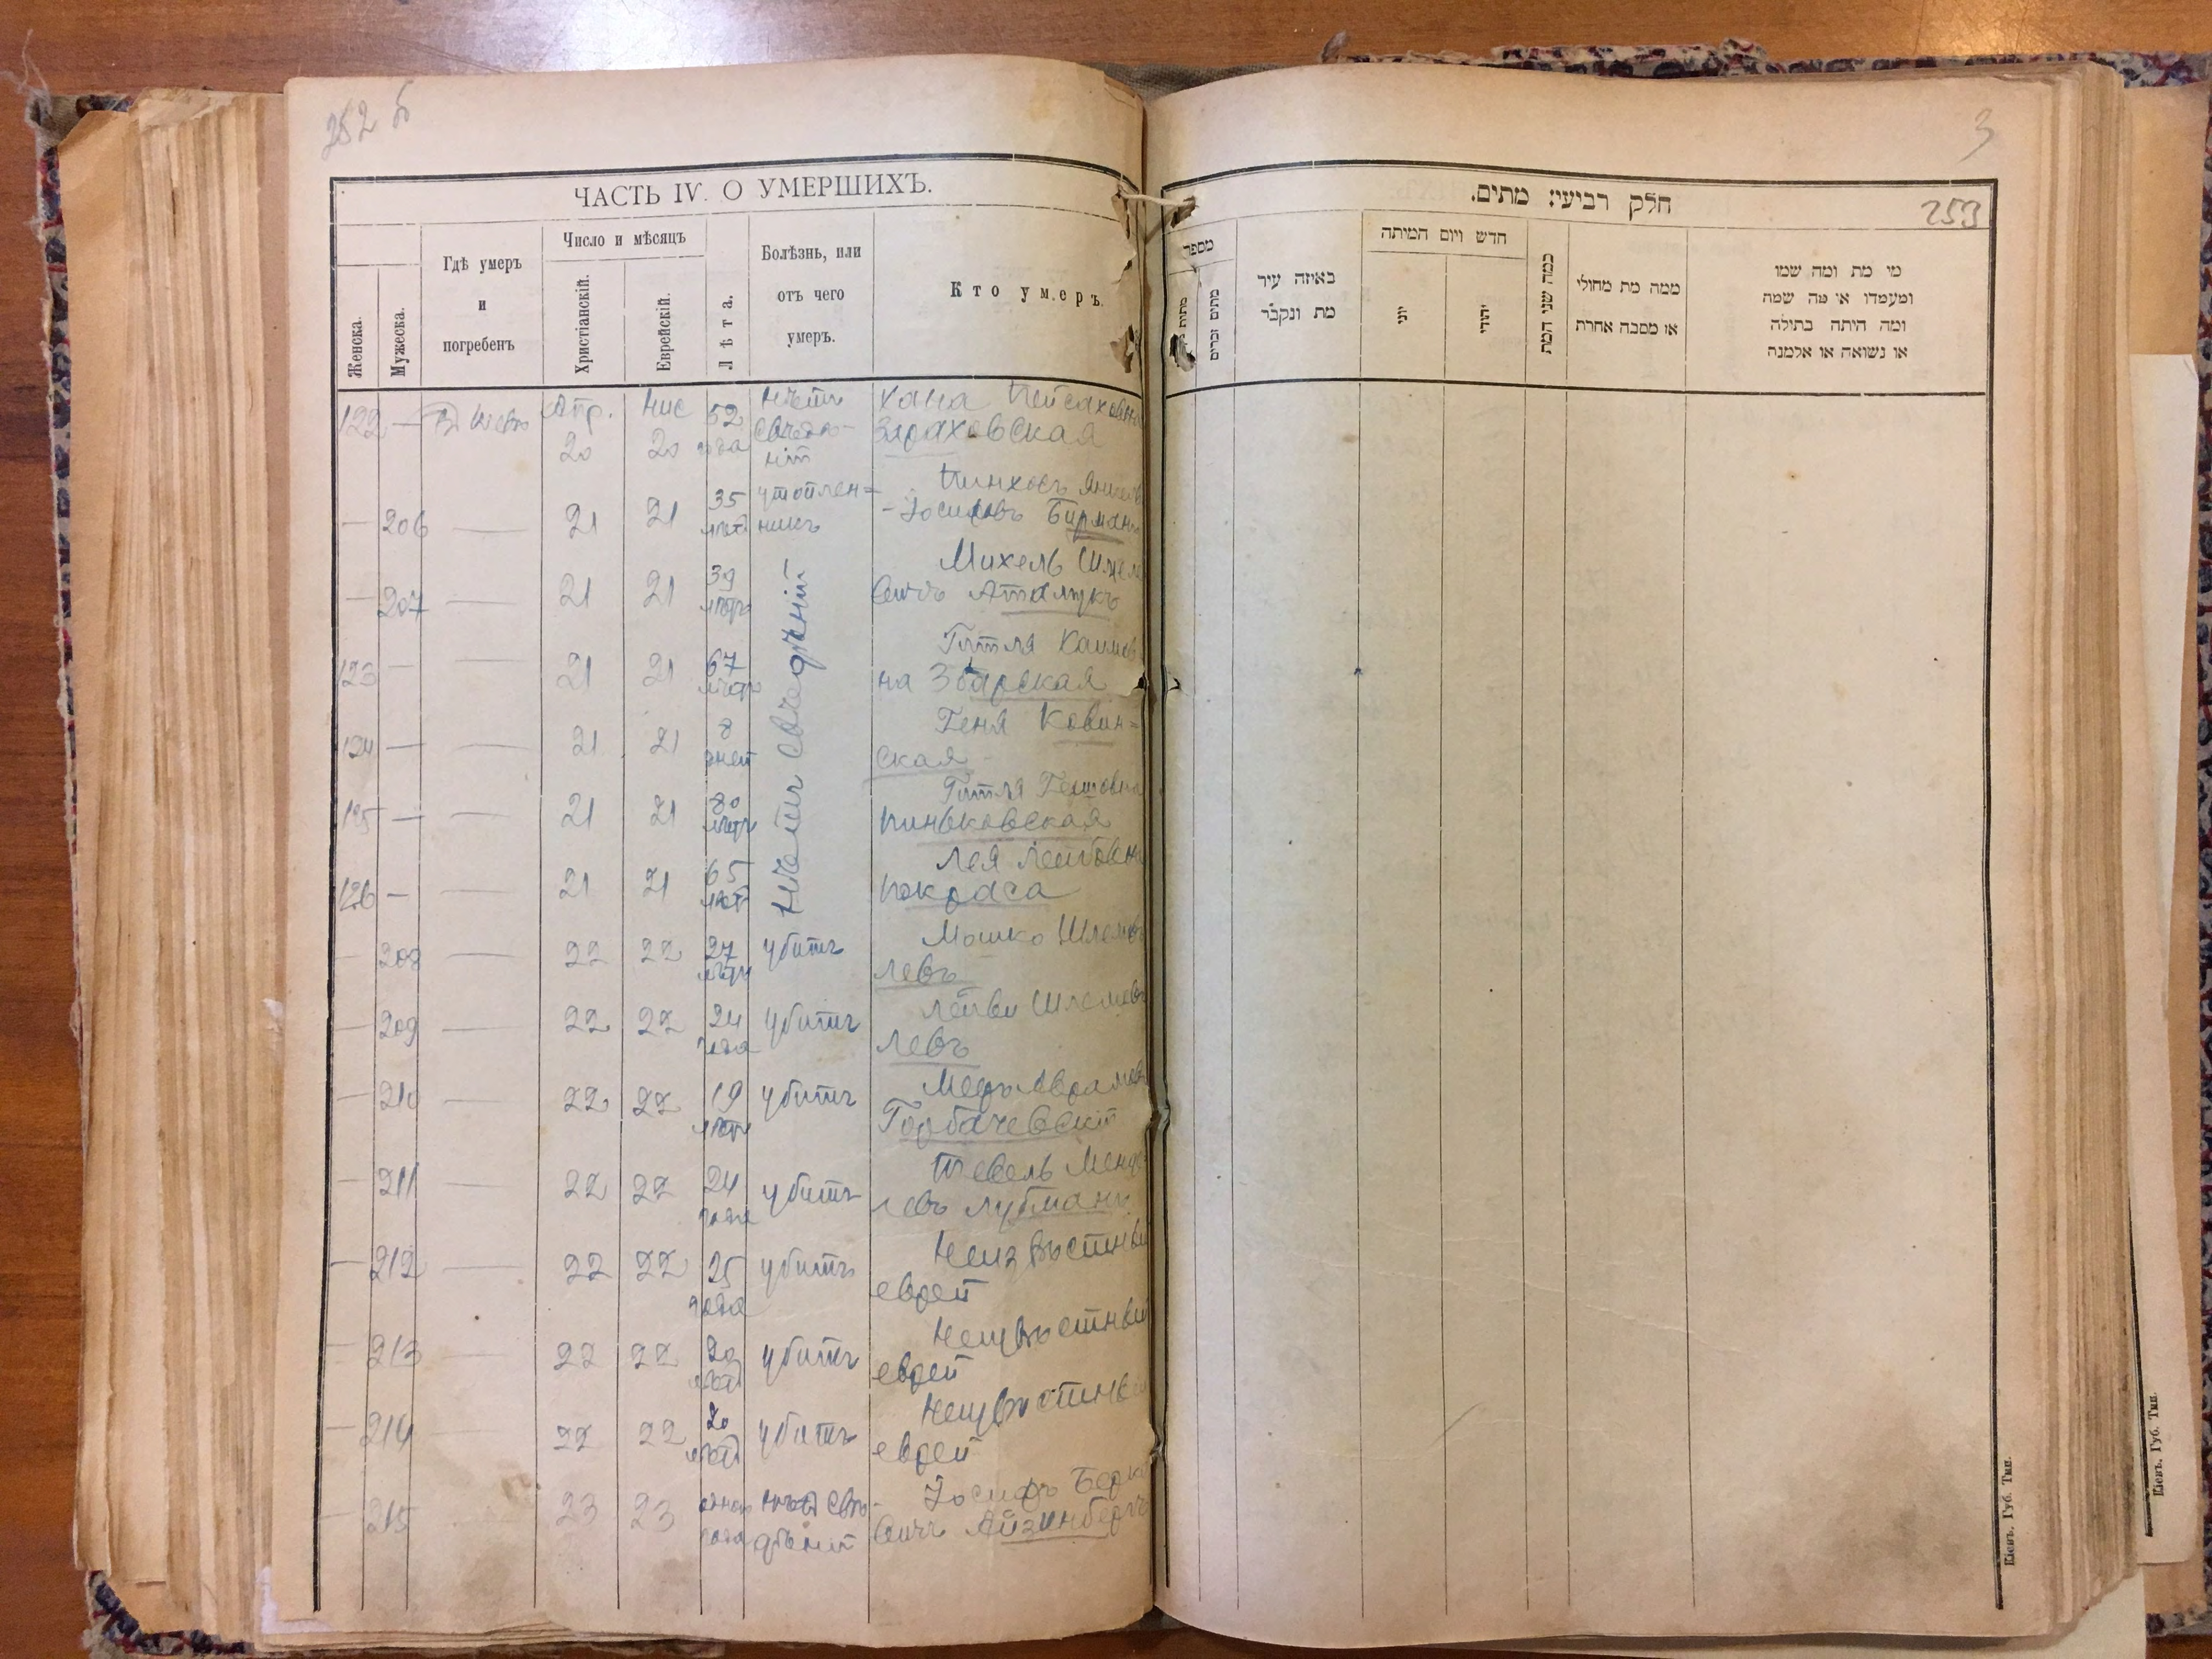 252 б
ЧАСТЬ IV. О УМЕРШИХЪ.
Женска.
Мужеска.
Гдѣ умеръ
и
погребенъ
Число и мѣсяцъ
Христіанскій.
Еврейскій.
Лѣта.
Болѣзнь, или
отъ чего
умеръ.
Кто умеръ.
122 — Апр. 20 Нис 20 52 года нѣтъ свѣдѣній Хана Пейсаховна
— 206 — 21 21 35 лѣтъ утоплен=
никъ Пинхосъ
-Іосифовъ Бирманъ
— 207 — 21 21 39 лѣтъ Михель
нѣтъ свѣдѣній
123 — — 21 21 67 лѣтъ Гитля Хаимов
на Збарская
124 — — 21 21 8 дней Геня Ковин=
ская
125 — — 21 21 80 лѣтъ Гитля Гершовна
Пиньковская
126 — — 21 21 65 лѣтъ Лея Лейбовн
Покраса
— 208 — 22 22 27 лѣтъ убитъ Мошко Шлемовъ
Левъ
— 209 — 22 22 24 года убитъ Шлемовъ
Левъ
— 210 — 22 22 19 лѣтъ убитъ
Горбачевскій
— 211 — 22 22 24 года убитъ Тевель Менде
левъ Лубманъ
— 212 — 22 22 25 убитъ Неизвѣстный
еврей
— 213 — 22 22 20 лѣтъ убитъ Неизвѣстный
еврей
— 214 22 22 20 лѣтъ убитъ Неизвѣстный
еврей
215 23 23 года нѣтъ свѣ-
дѣній Іосифъ Берко
вичъ Айзинбергъ
3
259
חלק רביעי: מתים.
מספר
מתים זכרים
באיזה עיר
מת ונקבר
חדש ויום המיתה
יוני
יהודי
כמה שני המת
ממה מת מחולי
או מסבה אחרת
מי מת ומה שמו
ומעמדו או מה שמה
ומה היתה בתולה
או נשואה או אלמנה
Кіевъ. Губ. Тип.
Кіевъ. Губ. Тип.